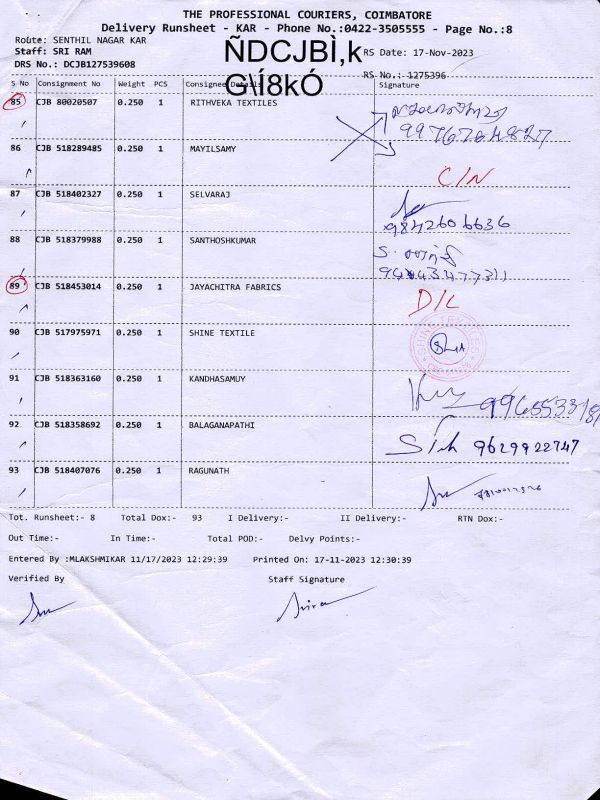 THE PROFESSIONAL COURIERS, COIMBATORE
Delivery Runsheet - KAR - Phone No.:0422-3505555 - Page No.:8
Route: SENTHIL NAGAR KAR
Staff: SRI RAM
ÑDCJBÌ,k
RS Date: 17-Nov-2023
DRS No.: DCJB127539608
G\Í8kÓ
RS No.: 1275396
S No Consignment No Weight PCS Consignee Details Signature
85 CJB 80020507 0.250 1 RITHVEKA TEXTILES
86 CJB 518289485 0.250 1 MAYILSAMY
C/N
87 CJB 518402327 0.250 1 SELVARAJ
9842606636
88 CJB 518379988 0.250 1 SANTHOSHKUMAR
89 CJB 518453014 0.250 1 JAYACHITRA FABRICS
D/L
90 CJB 517975971 0.250 1 SHINE TEXTILE
91 CJB 518363160 0.250 1 KANDHASAMUY
92 CJB 518358692 0.250 1 BALAGANAPATHI
9629922747
93 CJB 518407076 0.250 1 RAGUNATH
Tot. Runsheet:- 8 Total Dox:- 93 I Delivery:- II Delivery:- RTN Dox:-
Out Time:- In Time:- Total POD:- Delvy Points:-
Entered By :MLAKSHMIKAR 11/17/2023 12:29:39 Printed On: 17-11-2023 12:30:39
Verified By Staff Signature